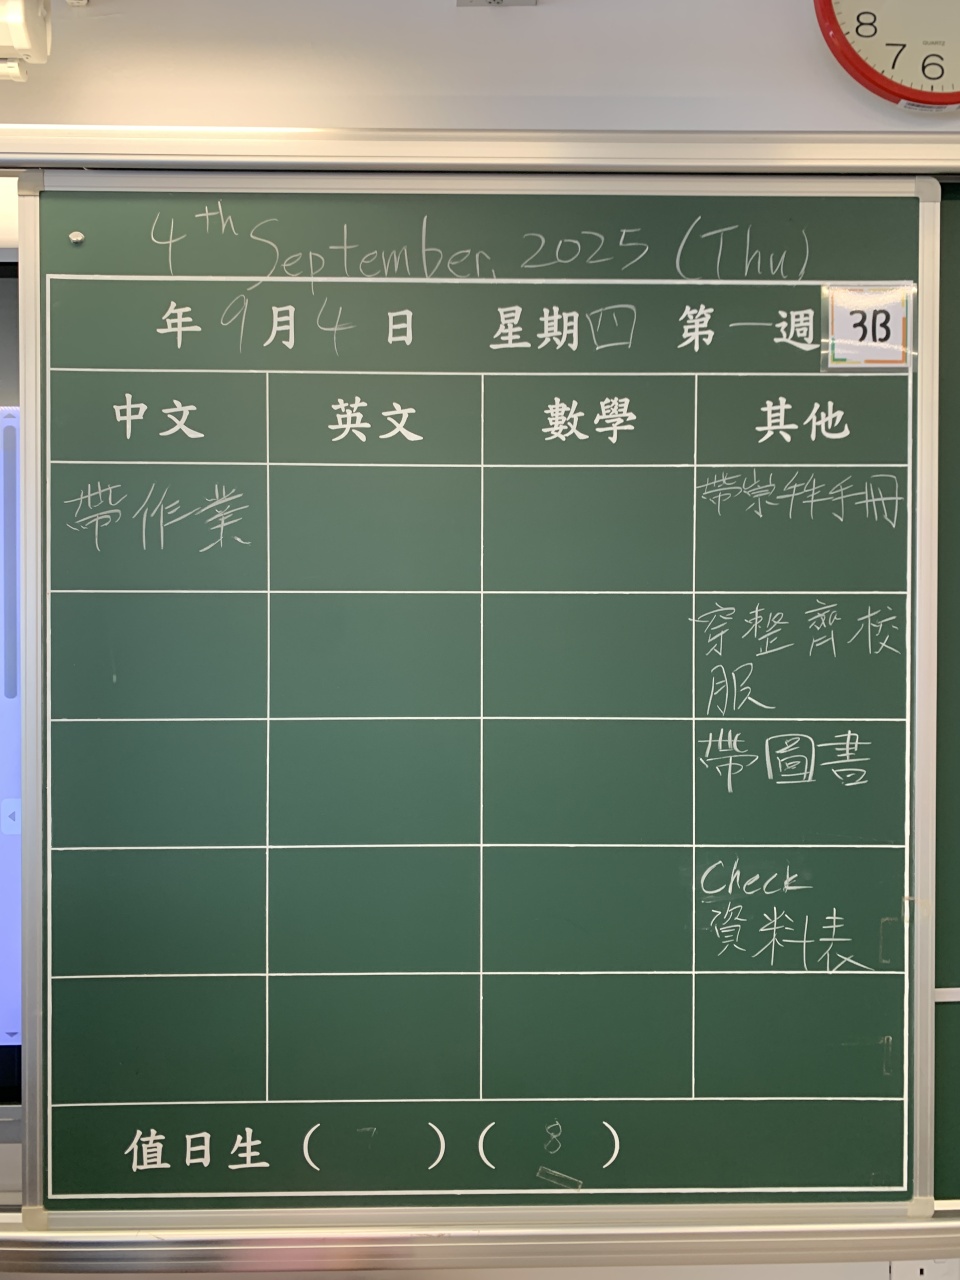 8
7
6
QUARTZ
4th September, 2025 (Thu)
年9月4日 星期四 第一週 3B
中文 英文 數學 其他
帶作業
帶崇拜手冊
穿整齊校
服
帶圖書
Check
資料表
值日生( 7 )( 8 )